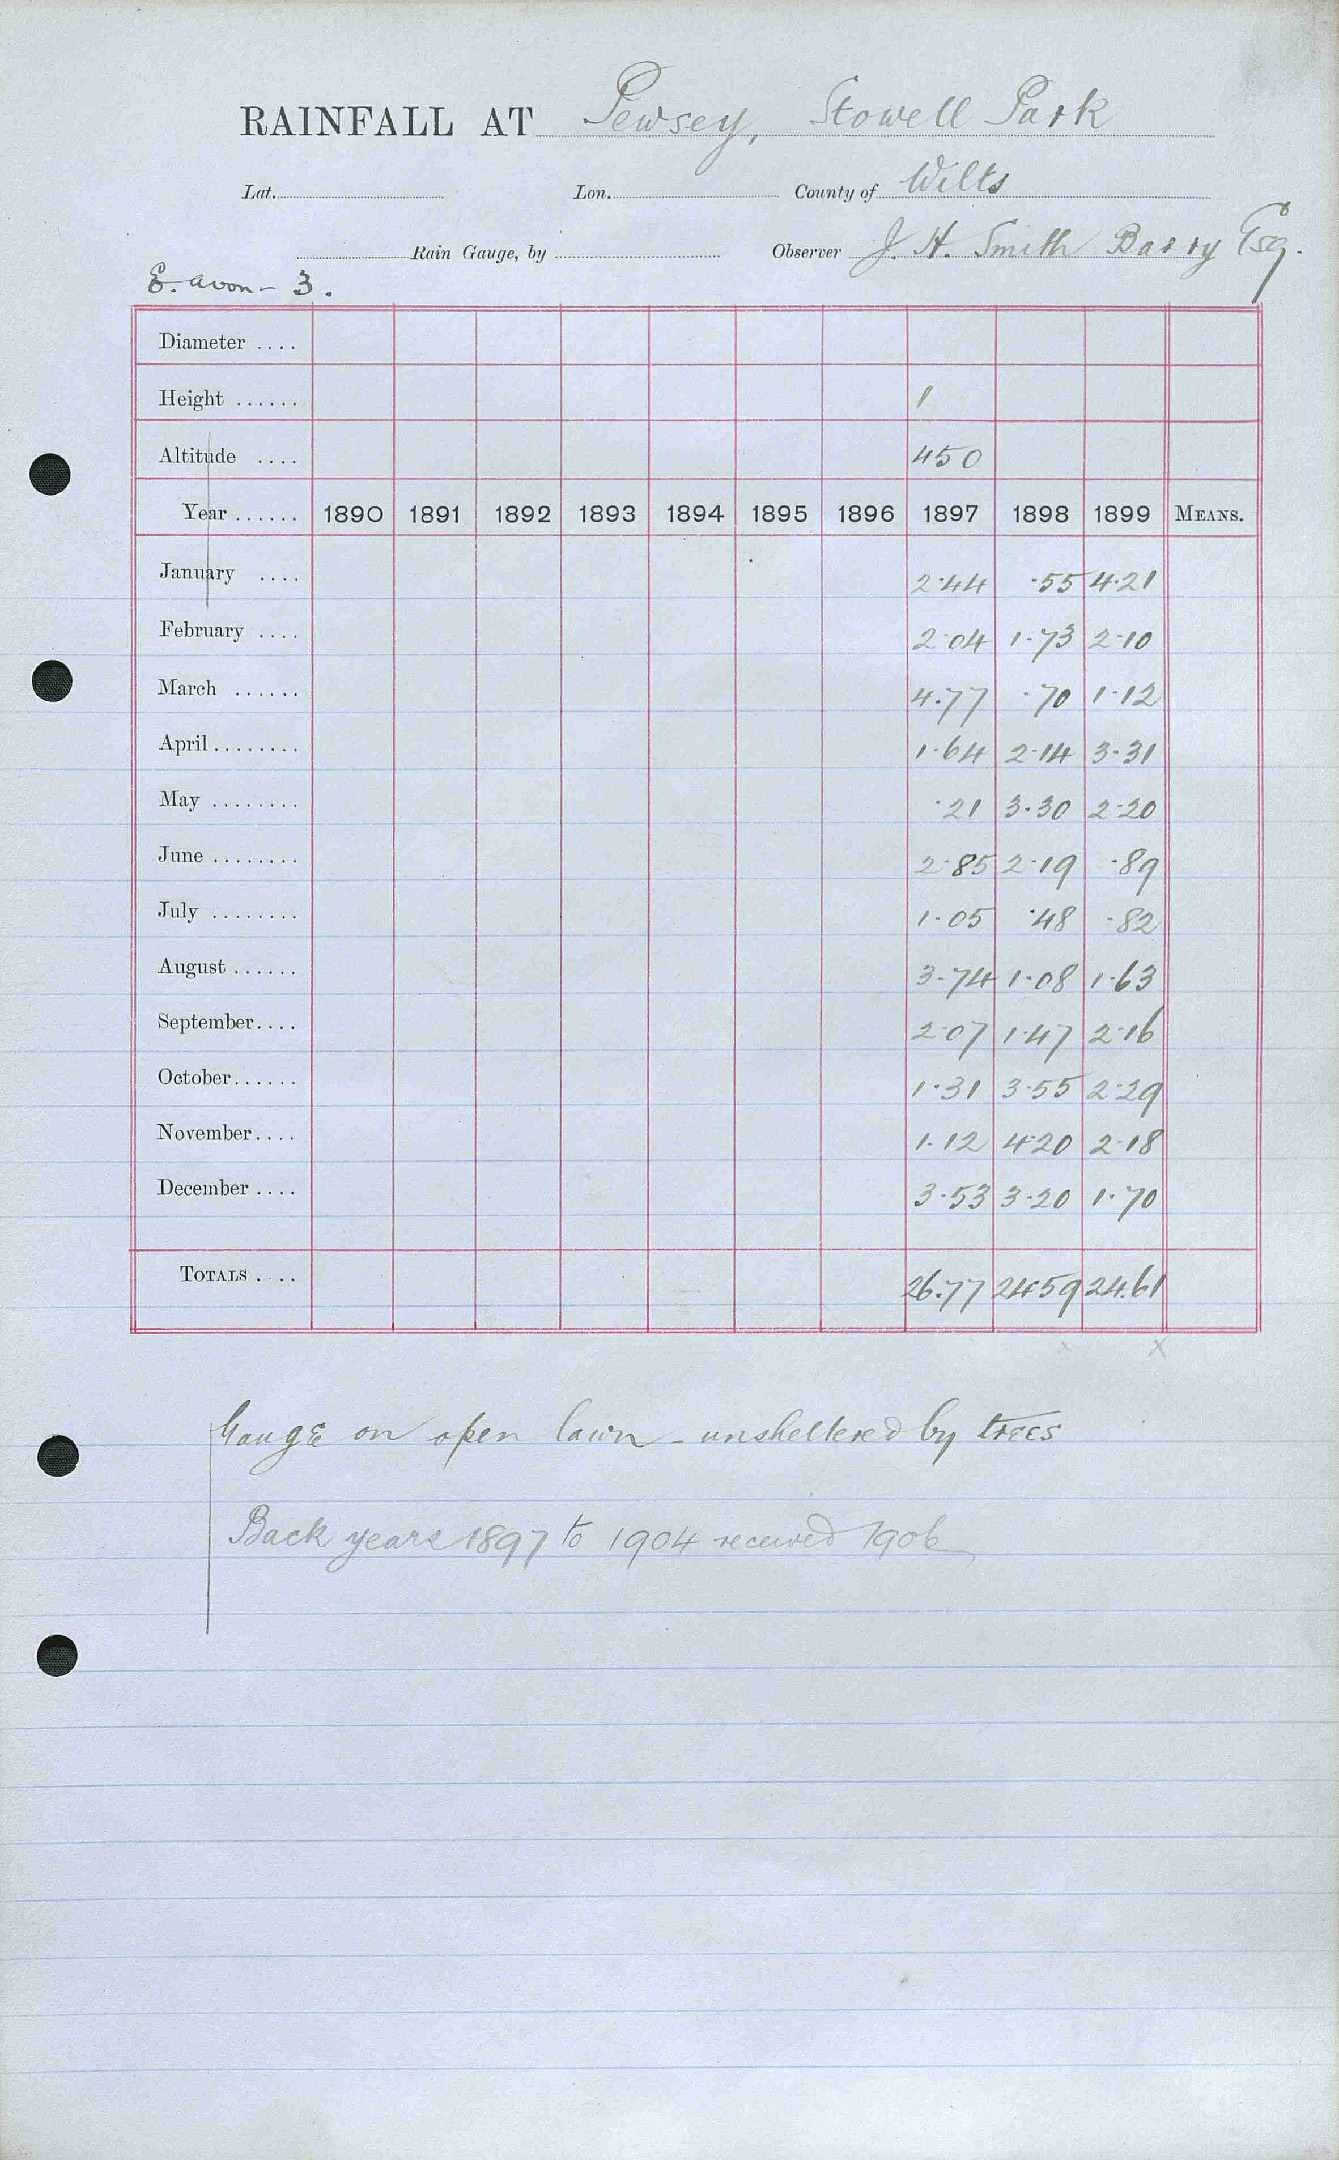 RAINFALL AT Pewsey, Stowell Park
Lat. Lon. County of Wilts
Rain Gauge, by Observer J. H. Smith Barry Esq.
E. Avon - 3.
Diameter ....
Height ...... 1
Altitude .... 450
Year ...... 1890 1891 1892 1893 1894 1895 1896 1897 1898 1899 MEANS.
January .... 2.44 .55 4.21
February .... 2.04 1.73 2.10
March ...... 4.77 .70 1.12
April ........ 1.64 2.14 3.31
May ........ .21 3.30 2.20
June ........ 2.85 2.19 .89
July ........ 1.05 .48 .82
August ...... 3.74 1.08 1.63
September.... 2.07 1.47 2.16
October...... 1.31 3.55 2.29
November.... 1.12 4.20 2.18
December .... 3.53 3.20 1.70
TOTALS .... 26.77 24.59 24.61
x x
Gauge on open lawn - unsheltered by trees
Back years 1897 to 1904 received 1906